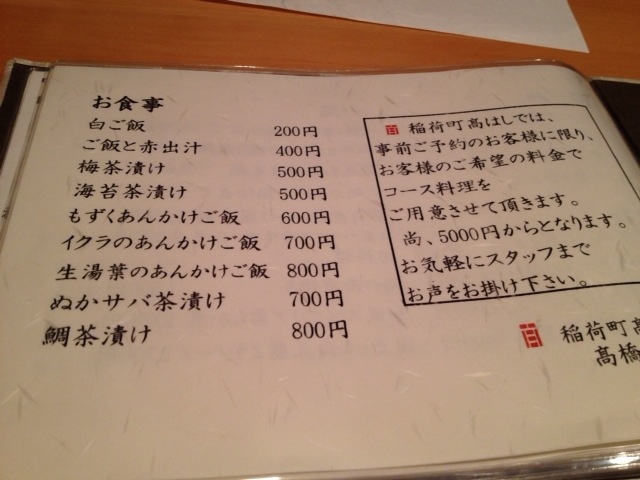 お食事
白ご飯 200円
ご飯と赤出汁 400円
梅茶漬け 500円
海苔茶漬け 500円
もずくあんかけご飯 600円
イクラのあんかけご飯 700円
生湯葉のあんかけご飯 800円
ぬかサバ茶漬け 700円
鯛茶漬け 800円
稲荷町高はしでは、
事前ご予約のお客様に限り、
お客様のご希望の料金で
コース料理を
ご用意させて頂きます。
尚、5000円からとなります。
お気軽にスタッフまで
お声をお掛け下さい。
稲荷町高
高橋